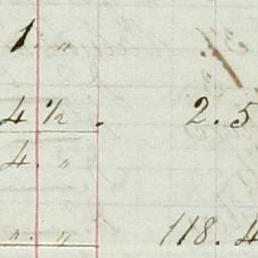 1. "
4 ½. 2.5
4. "
". " 118.4